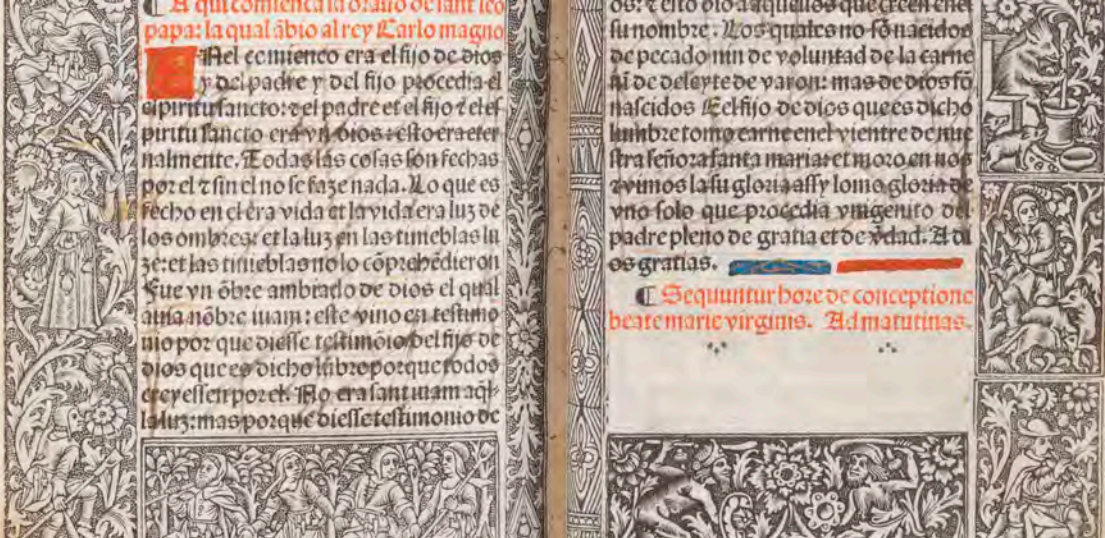 ¶ A qui comiença la oraciõ de sant leo
papa: la qual ãbio al rey Carlo magno
Nel comienco era el fijo de dios
y del padre y del fijo procedia el
espiritu sancto: ⁊ el padre et el fijo ⁊ el es
piritu sancto era vn dios: esto era eter
nalmente. Todas las cosas son fechas
por el ⁊ sin el no se faze nada. Lo que es
fecho en el era vida et la vida era luz de
los ombres: et la luz en las tinieblas lu
ze: et las tinieblas no lo cõprehẽdieron
Fue vn õbre ambiado de dios el qual
auia nõbre iuam: este vino en testimo
nio por que diesse testimõio del fijo de
dios que es dicho lũbre porque todos
creyessen por el. No era sant iuam aq̃l-
la luz: mas porque diesse testimonio de
os: ⁊ esto dio a aquellos que creen enel
su nombre: Los quales no sõ nacidos
de pecado nin de voluntad de la carne
ni de deleyte de varon: mas de dios sõ
nascidos E el fijo de dios que es dicho
lumbre tomo carne enel vientre de nue
stra señora santa maria: et moro en nos
⁊ vimos la su gloria assy como gloria de
vno solo que procedia vnigenito del
padre pleno de gratia et de v̄dad. A di
os gratias.
¶ Sequuntur hore de conceptione
beate marie virginis. Ad matutinas.